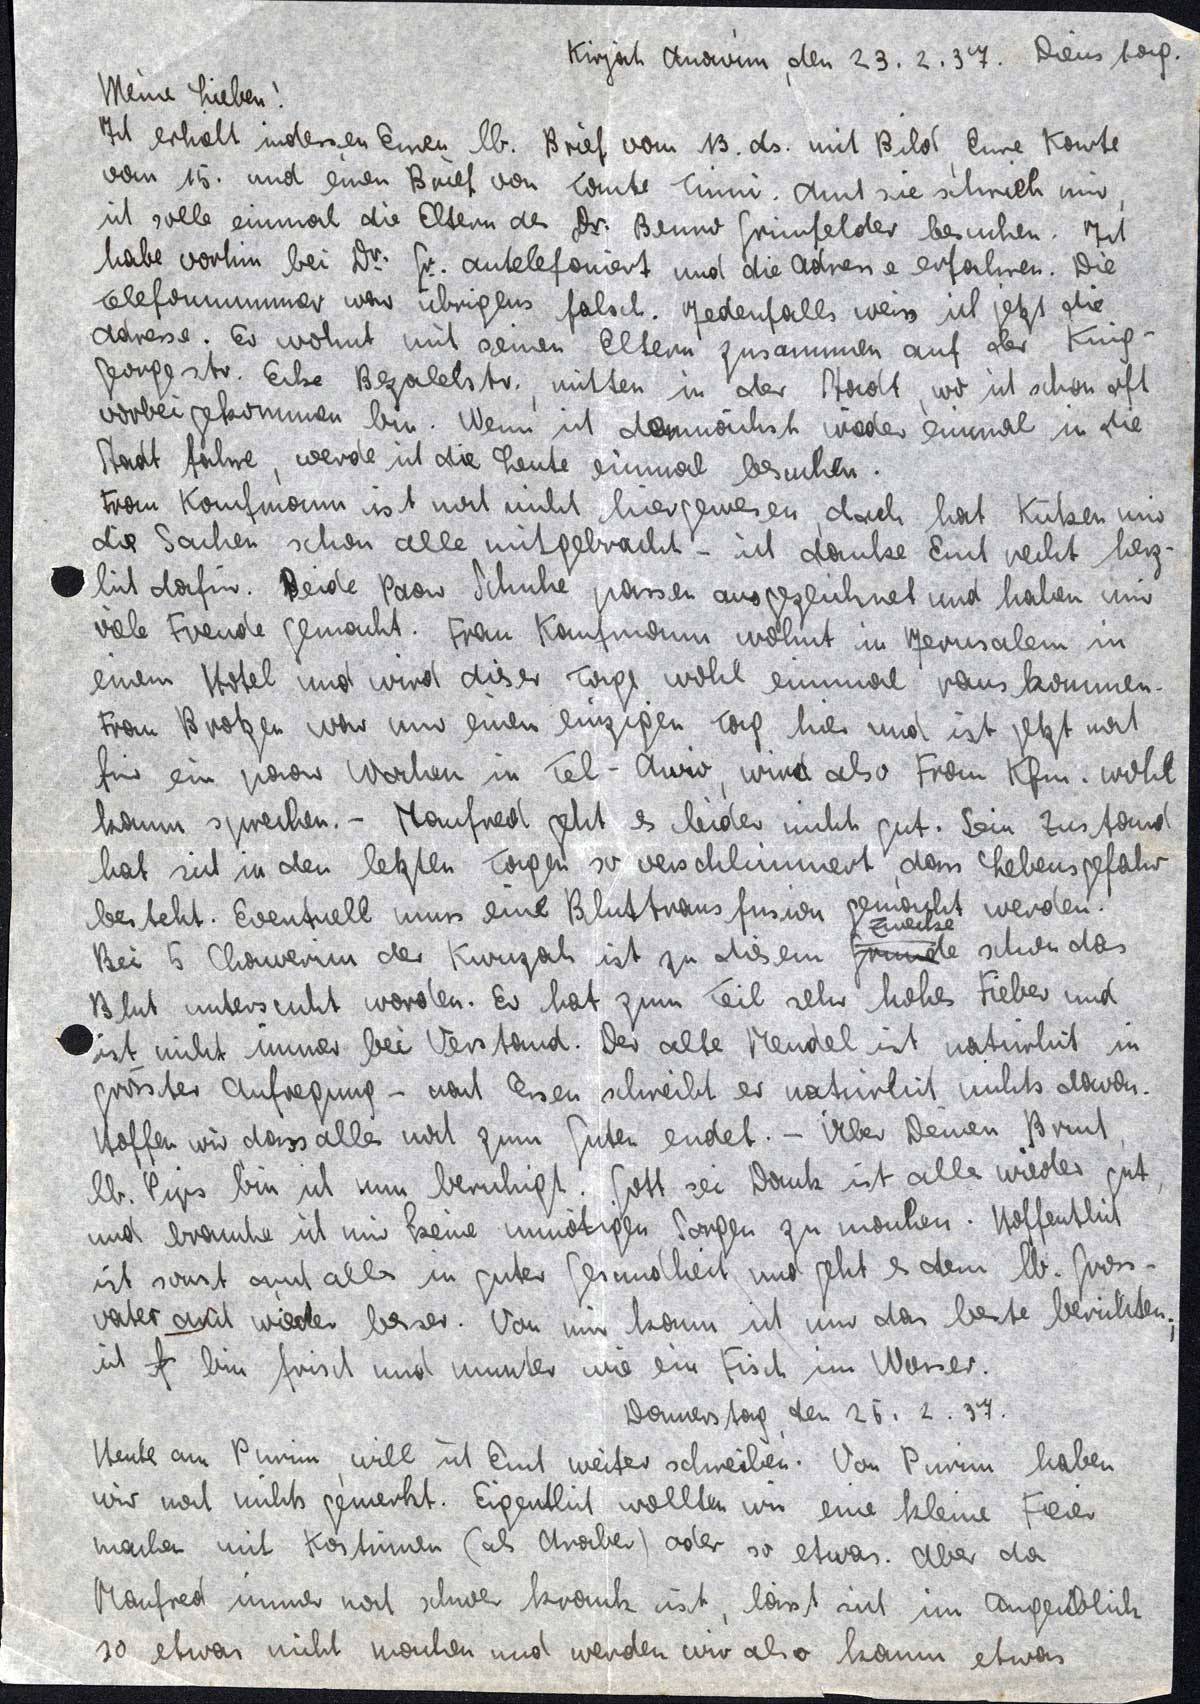 Kirjath Anavim, den 23.2.37. Dienstag.
Meine Lieben!
Ich erhielt indessen Euren lb. Brief vom 13. ds. mit Bild, Eure Karte
vom 15. und einen Brief von Tante Tinni. Auch sie schrieb mir,
ich solle einmal die Eltern des Dr. Benno Grünfelder besuchen. Ich
habe vorhin bei Dr. Gr. antelefoniert und die Adresse erfahren. Die
Telefonnummer war übrigens falsch. Jedenfalls weiss ich jetzt die
Adresse. Er wohnt mit seinen Eltern zusammen auf der King-
georgestr. Ecke Bezalelstr., mitten in der Stadt, wo ich schon oft
vorbeigekommen bin. Wenn ich demnächst wieder einmal in die
Stadt fahre, werde ich die Leute einmal besuchen.
Frau Kaufmann ist noch nicht hiergewesen, doch hat Küken mir
die Sachen schon alle mitgebracht - ich danke Euch recht herz-
lich dafür. Beide Paar Schuhe passen ausgezeichnet und haben mir
viele Freude gemacht. Frau Kaufmann wohnt in Jerusalem in
einem Hotel und wird dieser Tage wohl einmal rauskommen.
Frau Brotzen war nur einen einzigen Tag hier und ist jetzt noch
für ein paar Wochen in Tel-Awiw, wird also Frau Kfm. wohl
kaum sprechen. - Manfred geht es leider nicht gut. Sein Zustand
hat sich in den letzten Tagen so verschlimmert, dass Lebensgefahr
besteht. Eventuell muss eine Bluttransfusion gemacht werden.
Bei 5 Chawerim der Kwuzah ist zu diesem Grunde Zwecke schon das
Blut untersucht worden. Er hat zum Teil sehr hohes Fieber und
ist nicht immer bei Verstand. Der alte Mendel ist natürlich in
grösster Aufregung - nach Essen schreibt er natürlich nichts davon.
Hoffen wir dass alles noch zum Guten endet. - Über Deinen Bruch,
lb. Pips bin ich nun beruhigt. Gott sei Dank ist alles wieder gut,
und brauche ich mir keine unnötigen Sorgen zu machen. Hoffentlich
ist sonst auch alles in guter Gesundheit und geht es dem lb. Gross-
vater auch wieder besser. Von mir kann ich nur das beste berichten;
ich f bin frisch und munter wie ein Fisch im Wasser.
Donnerstag, den 25.2.37.
Heute am Purim, will ich Euch weiter schreiben. Von Purim haben
wir noch nichts gemerkt. Eigentlich wollten wir eine kleine Feier
machen mit Kostümen (als Araber) oder so etwas. Aber da
Manfred immer noch schwer krank ist, lässt sich im Augenblick
so etwas nicht machen und werden wir also kaum etwas